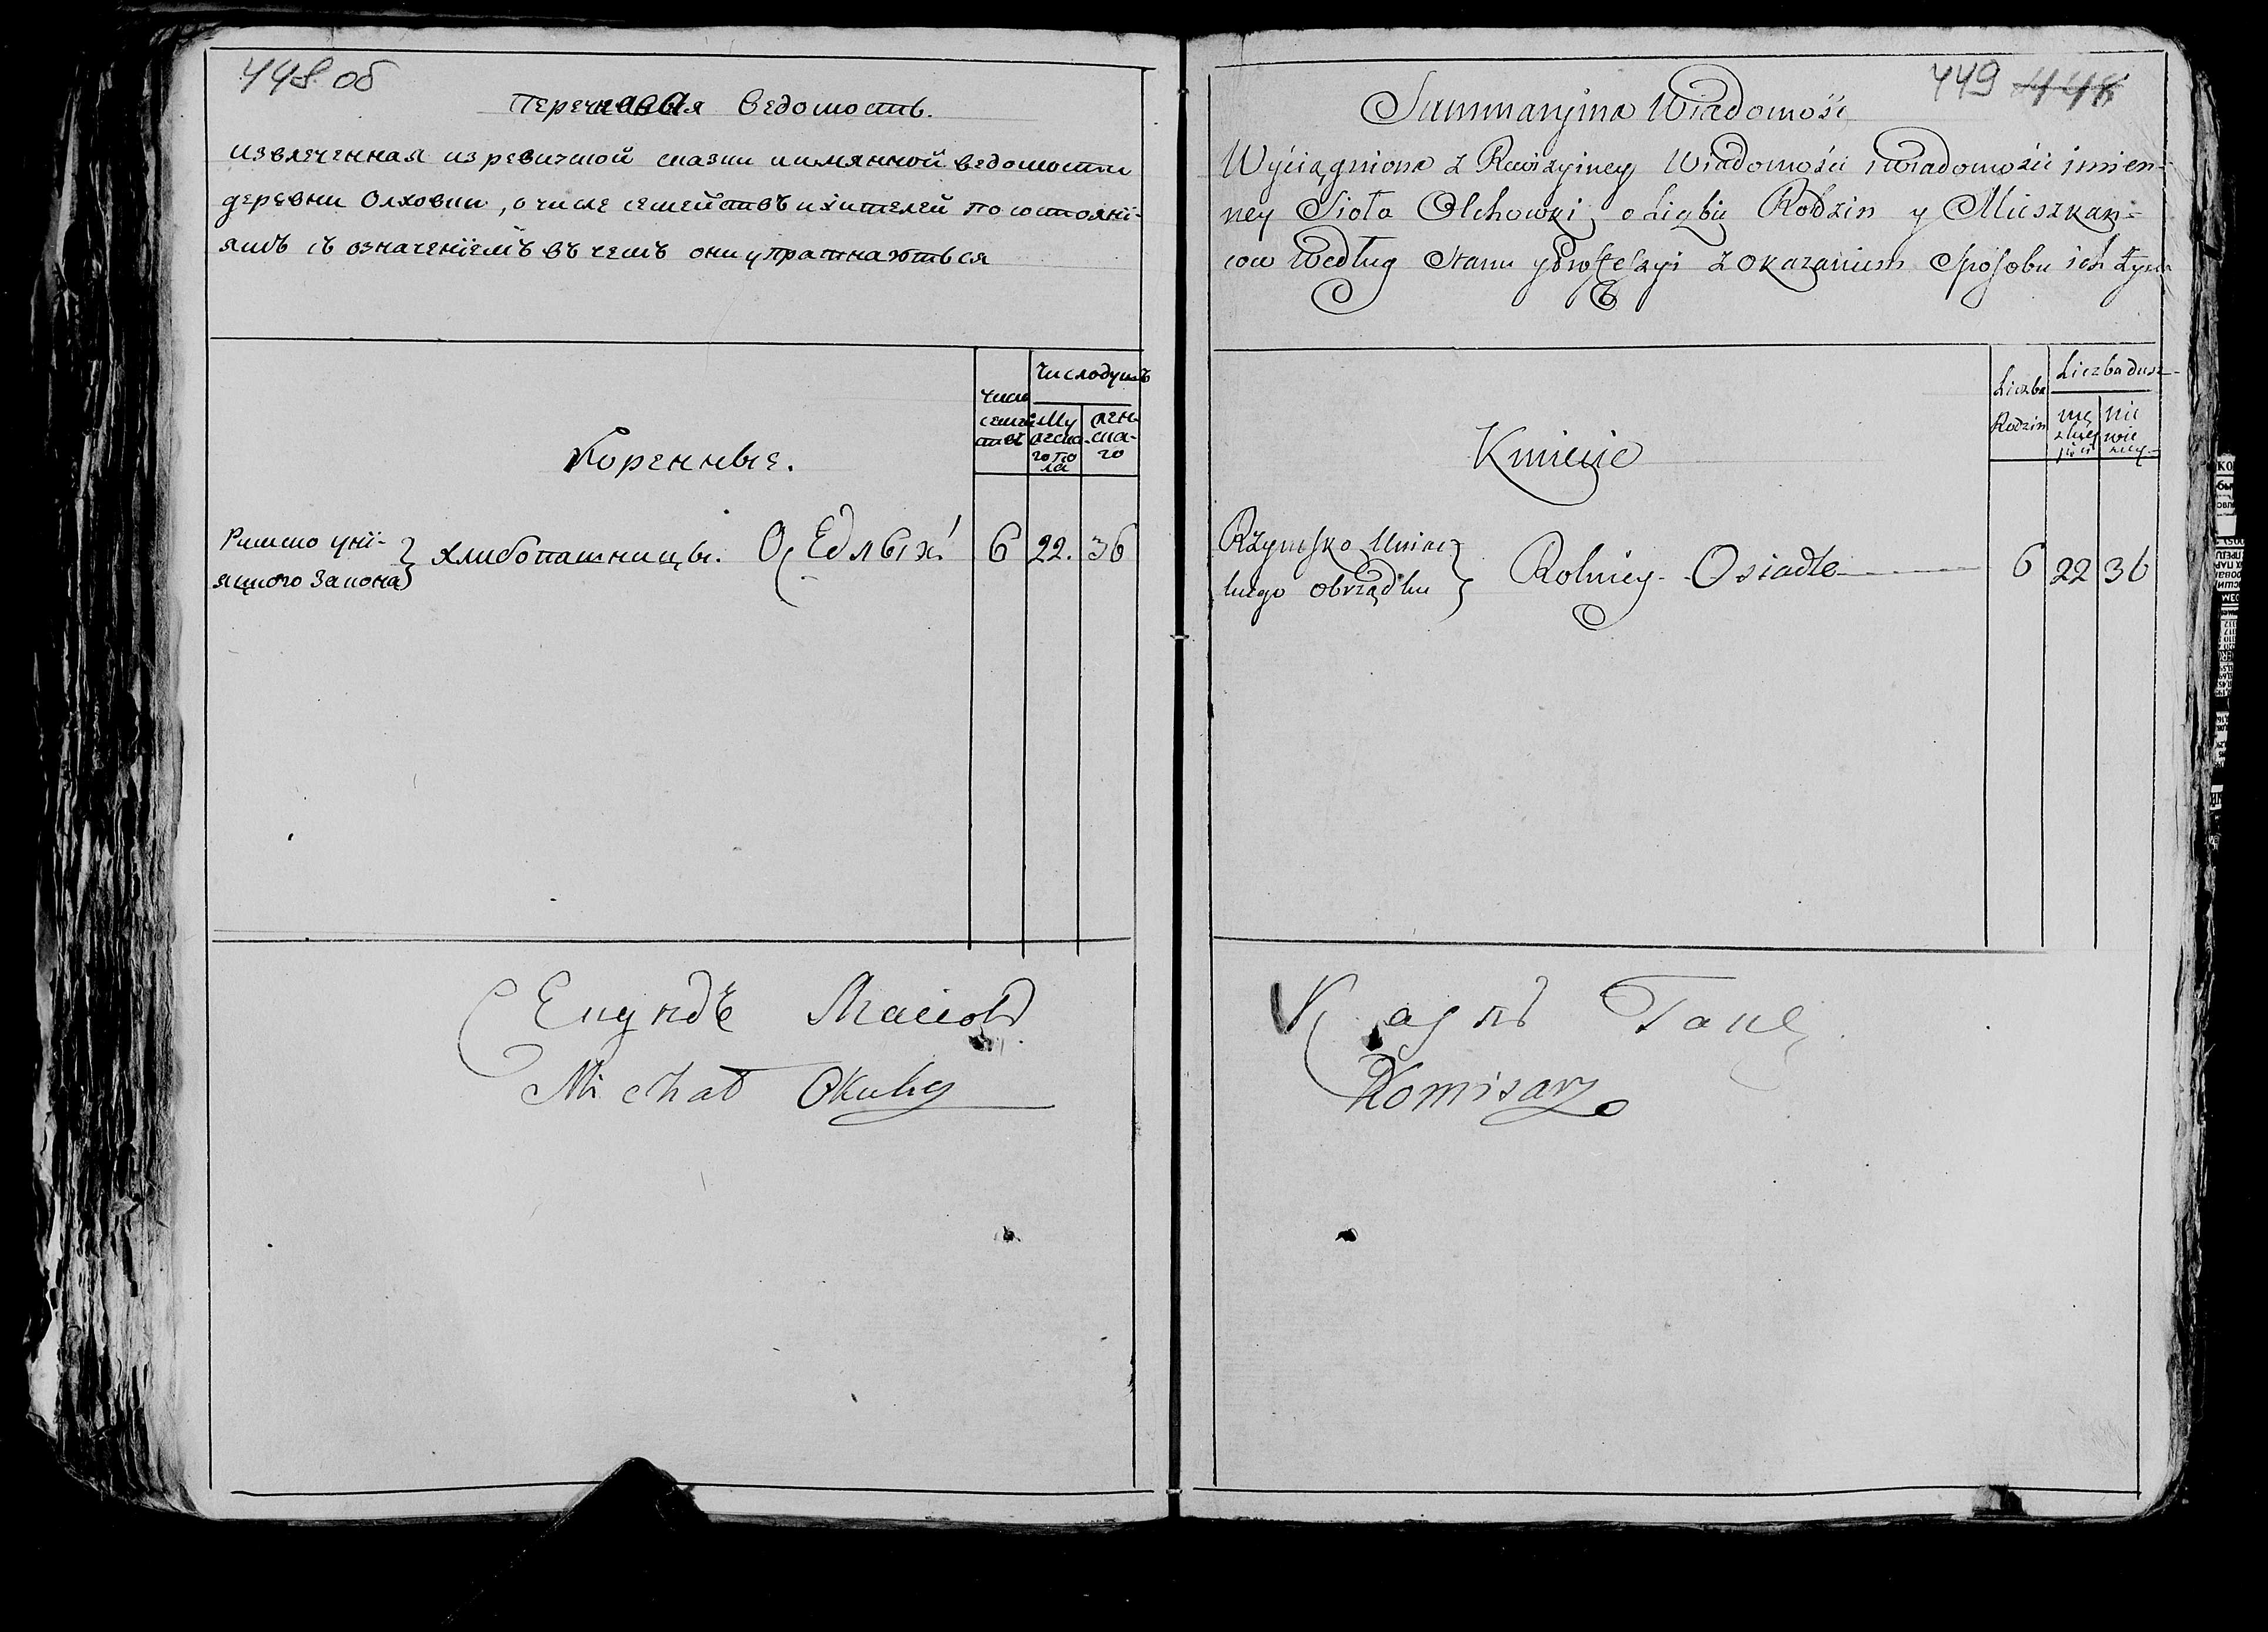 448 об
Перечневая Ведомость.
извлеченная изревизской сказки иимянной ведомости
деревни Олховки, очисле семействъ ижителей посостояні-
ямъ съ означеніемъ въ чемъ они упражнаються
Коренные.
число
семей
ствъ
Числодушъ
Му
жеска
гопо
ла
жен-
ска-
го
Римско уні-
яцкого Закона } хлибопашницы. Оседлыхъ 6 22. 36
Michał Okulicz
449 448
Summaryina Wiadomość
Wyciągniona z Rewizyiney Wiadomości i wiadomości imien-
ney Sioła Olchowki o Liczbie Rodzin y Mieszkań-
cow Według Stanu y Proffeszyi z okazaniem Sposobu ich Życia
Kmiecie
Liczba
Rodzin
Liczba dusz
mę
zkiey
płci
nie
wie
sciey
Rzymsko Uniac-
kiego obrządku } Rolnicy - Osiadłe 6 22 36
Komisarz